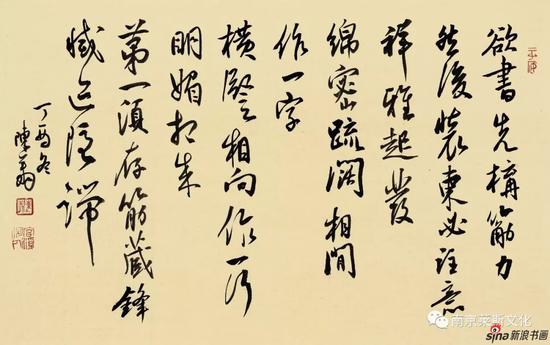 欲書先構筋力
然後裝束必注意
祥雅起發
綿密疏闊相間
作一字
橫豎相向作一行
明媚相成
第一須存筋藏鋒
滅迹隱端
丁酉冬
陳
南京莱斯文化
sina新浪书画